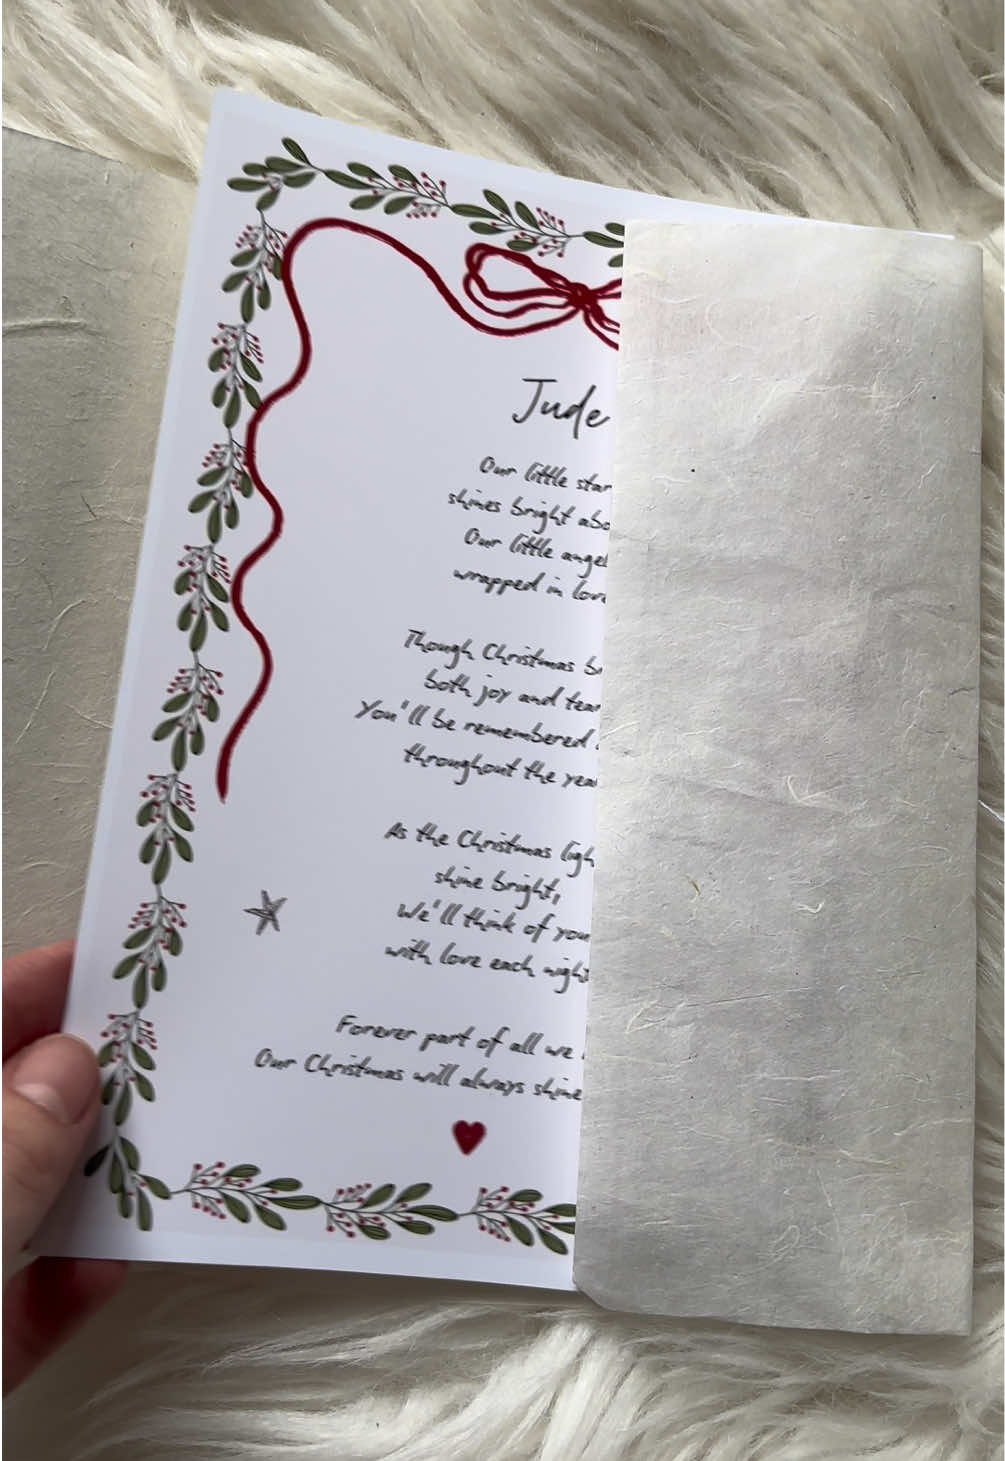 Jude
Our little star
shines bright abo
Our little angel
wrapped in love
Though Christmas br
both joy and tear
You'll be remembered
throughout the year
As the Christmas ligh
shine bright,
We'll think of you
with love each night
Forever part of all we
Our Christmas will always shine